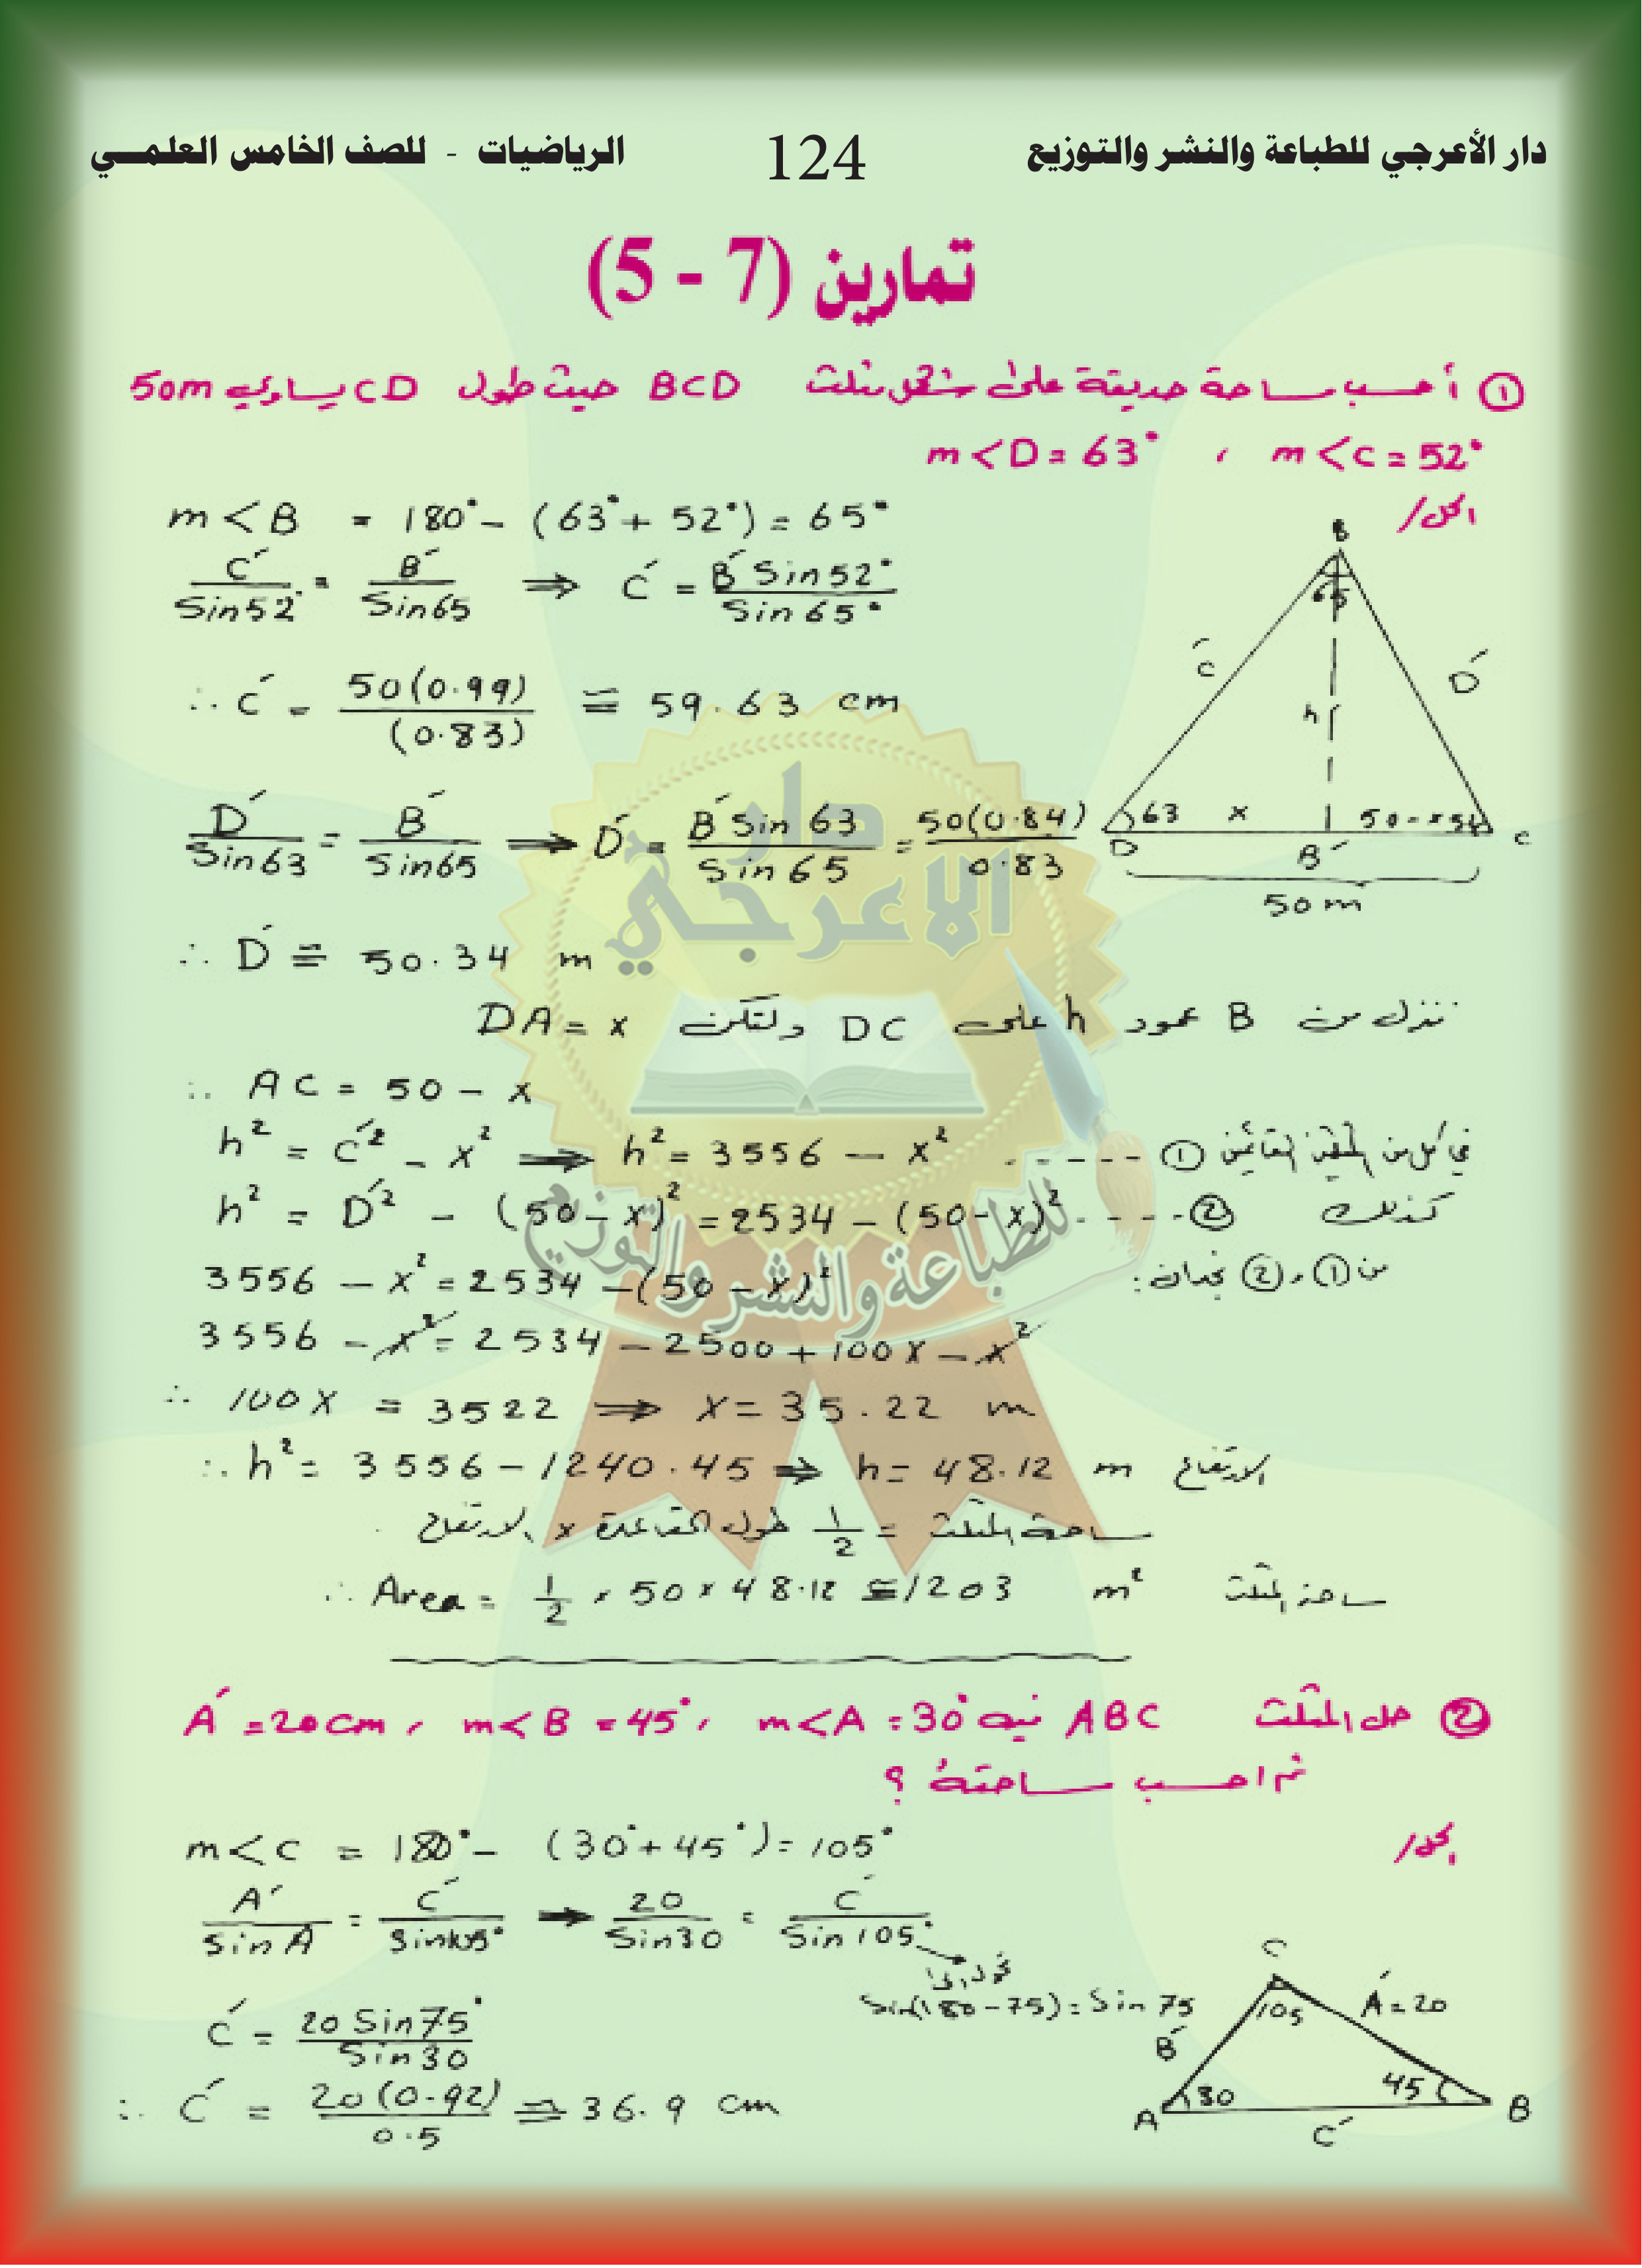 دار الأعرجي للطباعة والنشر والتوزيع 124 الرياضيات - للصف الخامس العلمي
تمارين (7 - 5)
① أحسب مساحة حديقة على شكل مثلث BCD حيث طول CD يساوي 50m
m<D = 63° ، m<c = 52°
الحل/
m<B = 180° - (63° + 52°) = 65°
C´/Sin52. = B´/Sin65 ⇒ C´ = B´ Sin52°/Sin65°
∴ C´ = 50(0.99)/(0.83) ≅ 59.63 cm
D´/Sin63 = B´/Sin65 ⇒ D´ = B´ Sin 63/Sin 65 = 50(0.84)/0.83
∴ D´ ≅ 50.34 m
B
65
C´
D´
h
63 x 50-x
D B´ C
50 m
ننزل من B عمود h على DC ولتكن DA = x
∴ AC = 50 - x
في كل من المثلثين القائمين ① ----- h² = C´² - x² ⇒ h² = 3556 - x²
كذلك ② ----- h² = D´² - (50-x)² = 2534 - (50-x)²
من ① و ② نجد ان :
3556 - x² = 2534 - (50-x)²
3556 - x² = 2534 - 2500 + 100x - x²
∴ 100x = 3522 ⇒ x = 35.22 m
∴ h² = 3556 - 1240.45 ⇒ h = 48.12 m الارتفاع
مساحة المثلث = 1/2 طول القاعدة x الارتفاع
∴ Area = 1/2 × 50 × 48.12 ≅ 1203 m² مساحة المثلث
② حل المثلث ABC فيه m<A = 30° ، m<B = 45° ، A´ = 20cm
ثم احسب مساحتة ؟
الحل/
m<C = 180° - (30° + 45°) = 105°
A´/sin A = C´/ ⇒ 20/Sin30 = C´/Sin105°
Sin(180-75) = Sin 75
C´ = 20 Sin75°/Sin30
∴ C´ = 20(0.92)/0.5 ≅ 36.9 cm
C
105
A´ = 20
B´
30 45
A C´ B
دار
الاعرجي
للطباعة والنشر والتوزيع